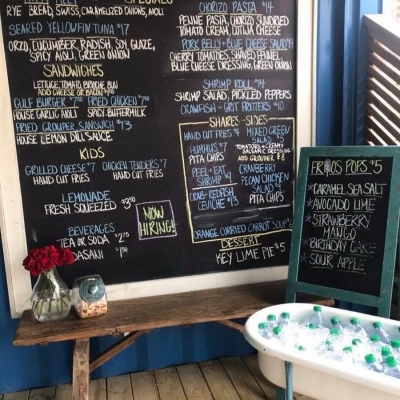 RYE BREAD, SWISS, CARAMELIZED ONIONS, AIOLI
SEARED YELLOWFIN TUNA $17
ORZO, CUCUMBER, RADISH, SOY GLAZE,
SPICY AIOLI, GREEN ONION
SANDWICHES
LETTUCE, TOMATO, BRIOCHE BUN
ADD CHEESE OR BACON
GULF BURGER $7 FRIED CHICKEN $7
HOUSE GARLIC MOLI SPICY BUTTERMILK
FRIED GROUPER SANDWICH $13
HOUSE LEMON DILL SAUCE
KIDS
GRILLED CHEESE $7 CHICKEN TENDERS $7
HAND CUT FRIES HAND CUT FRIES
LEMONADE
FRESH SQUEEZED
BEVERAGES
TEA OR SODA
DASANI
NOW
HIRING!
CHORIZO PASTA $14
PENNE PASTA, CHORIZO, SUNDRIED
TOMATO CREAM, COTIJA CHEESE
PORK BELLY + BLUE CHEESE SALAD $14
CHERRY TOMATOES, SHAVED FENNEL,
BLUE CHEESE DRESSING, GREEN ONION
SHRIMP ROLL $14
SHRIMP SALAD, PICKLED PEPPERS
CRAWFISH + GRIT FRITTERS $10
SHARES-SIDES
HAND CUT FRIES $4
HUMMUS $7
PITA CHIPS
PEEL + EAT
SHRIMP $9
CRAB + REDFISH
CEVICHE $13
MIXED GREEN
SALAD
ADD GROUPER $8
CRANBERRY
PECAN CHICKEN
SALAD
PITA CHIPS
ORANGE CURRIED CARROT SOUP
DESSERT
KEY LIME PIE $5
POPS $5
*CARAMEL SEA SALT
*AVOCADO LIME
*STRAWBERRY
MANGO
*BIRTHDAY CAKE
*SOUR APPLE